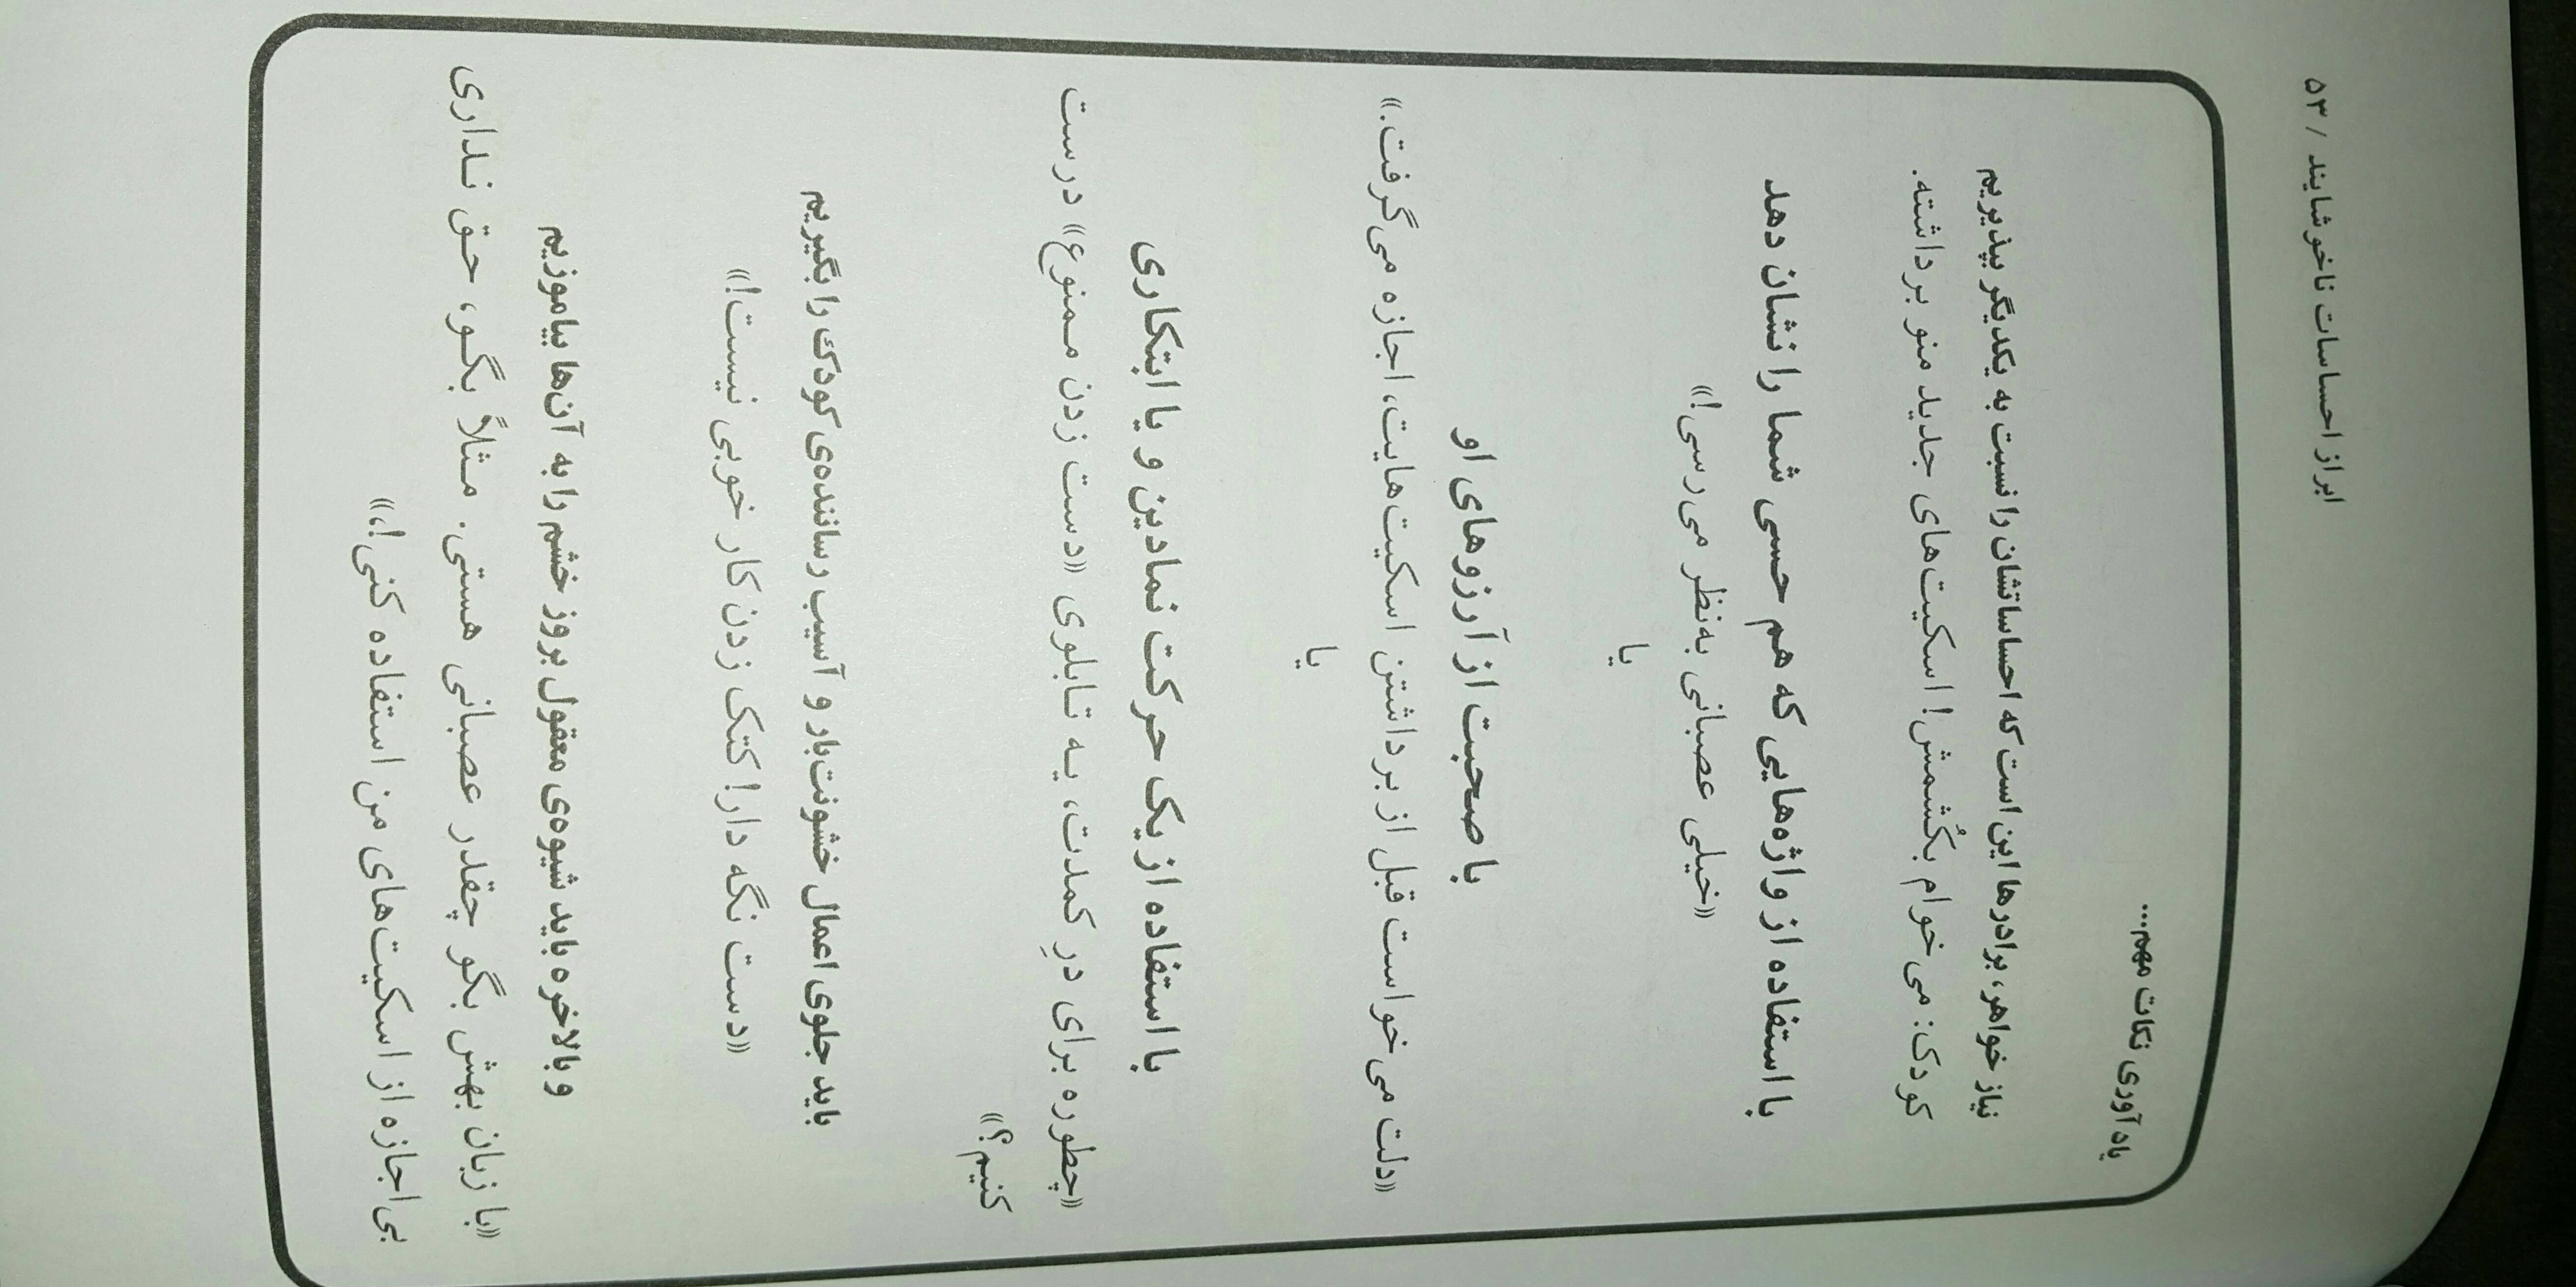 ابراز احساسات ناخوشایند / ۵۳
یادآوری نکات مهم...
نیاز خواهر، برادرها این است که احساساتشان را نسبت به یکدیگر بپذیریم
کودک: می‌خوام بکُشمش! اسکیت‌های جدید منو برداشته.
با استفاده از واژه‌هایی که هم حسی شما را نشان دهد
«خیلی عصبانی به‌نظر می‌رسی!»
یا
با صحبت از آرزوهای او
«دلت می‌خواست قبل از برداشتن اسکیت‌هایت، اجازه می‌گرفت.»
یا
با استفاده از یک حرکت نمادین و یا ابتکاری
«چطوره برای درِ کمدت، یه تابلوی «دست زدن ممنوع» درست
کنیم؟»
باید جلوی اعمال خشونت‌بار و آسیب رساننده‌ی کودک را بگیریم
«دست نگه دار! کتک زدن کار خوبی نیست!»
و بالاخره باید شیوه‌ی معقول بروز خشم را به آن‌ها بیاموزیم
«با زبان بهش بگو چقدر عصبانی هستی. مثلاً بگو، حق نداری
بی‌اجازه از اسکیت‌های من استفاده کنی!،»